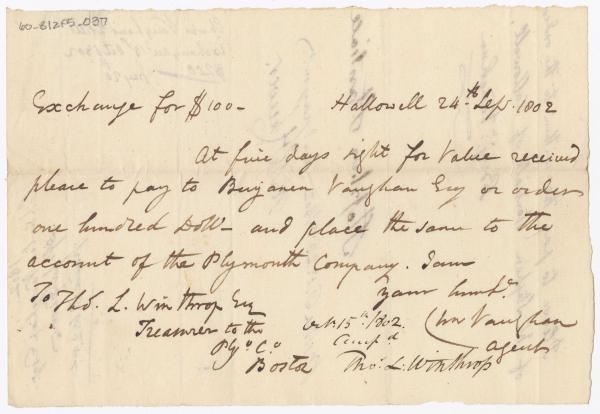 60-812F5-037
Exchange for $100- Hallowell 24th Sepr. 1802
At five days sight for Value received
please to pay to Benjamin Vaughan Esq or order
one hundred Dolls- and place the same to the
account of the Plymouth Company. I am
your humbl.
To Thos. L. Winthrop Esq
Treasurer to the
Plyo Co
Boston
Chs Vaughan
agent
Octr 15th 1802.
Accepd
Thos. L. Winthrop